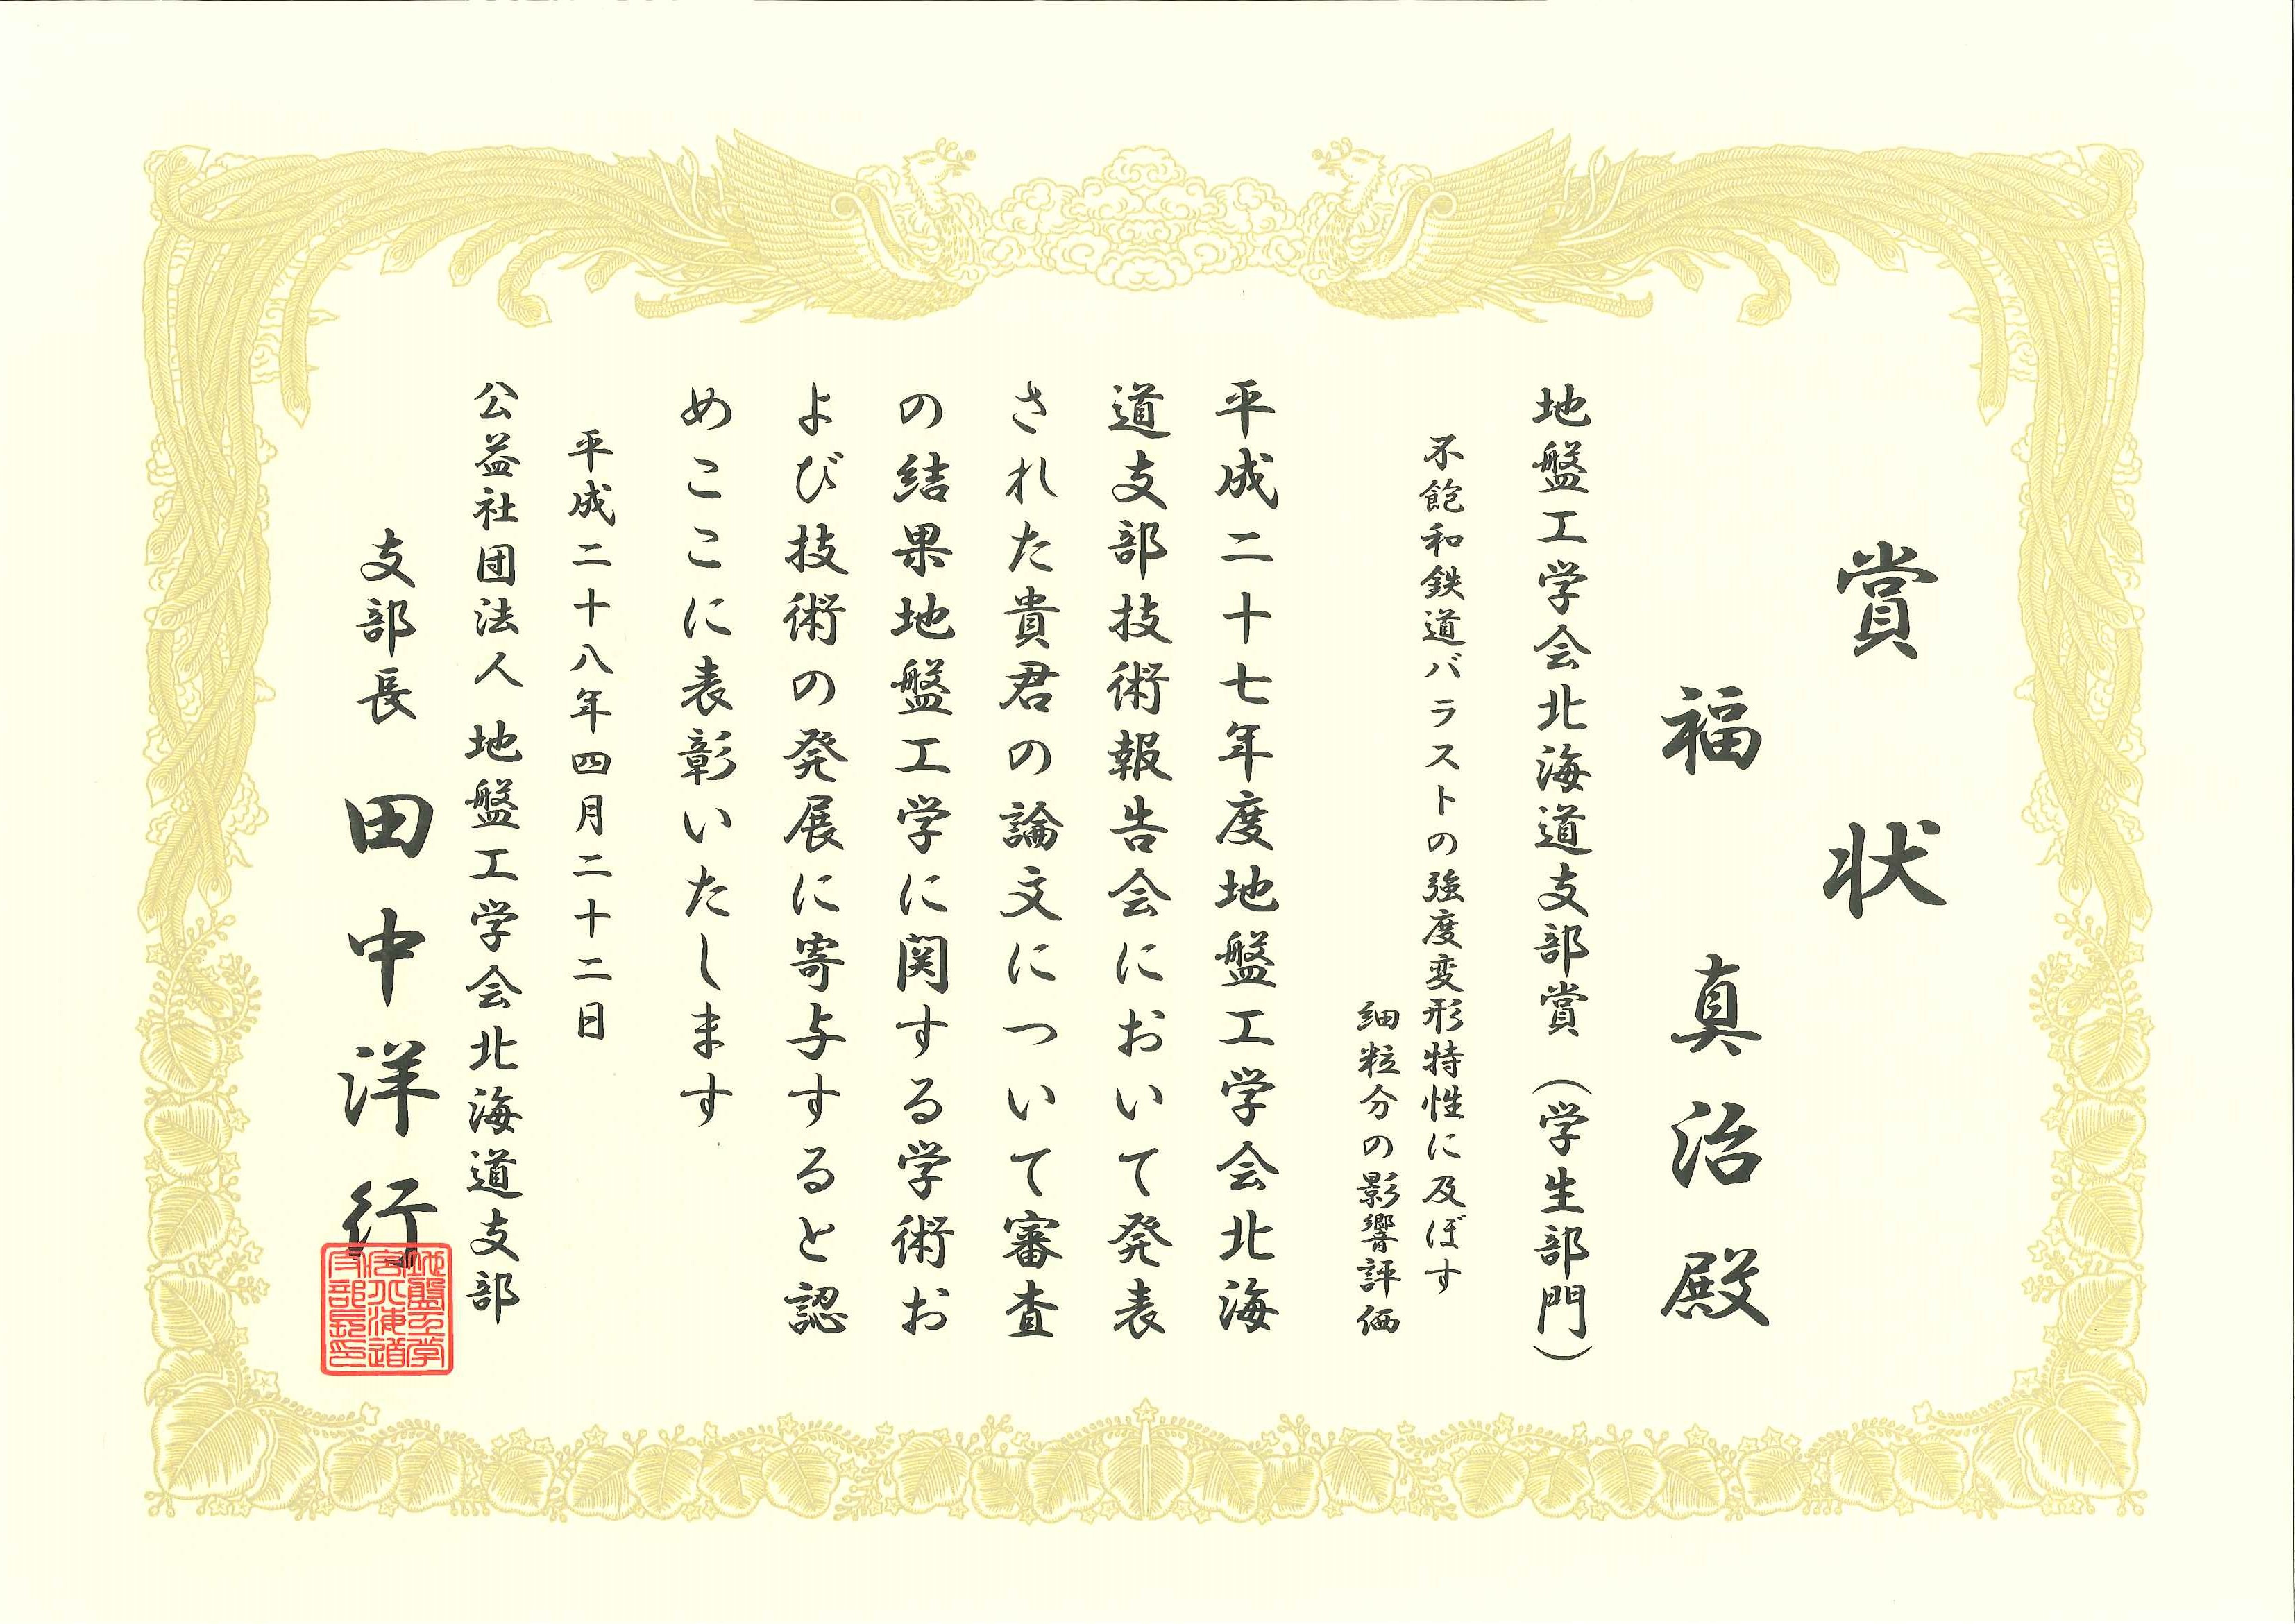 賞状
福真治殿
地盤工学会北海道支部賞（学生部門）
不飽和鉄道バラストの強度変形特性に及ぼす
細粒分の影響評価
平成二十七年度地盤工学会北海
道支部技術報告会において発表
された貴君の論文について審査
の結果地盤工学に関する学術お
よび技術の発展に寄与すると認
めここに表彰いたします
平成二十八年四月二十二日
公益社団法人 地盤工学会北海道支部
支部長 田中洋行
地盤工学
会北海道
支部長印